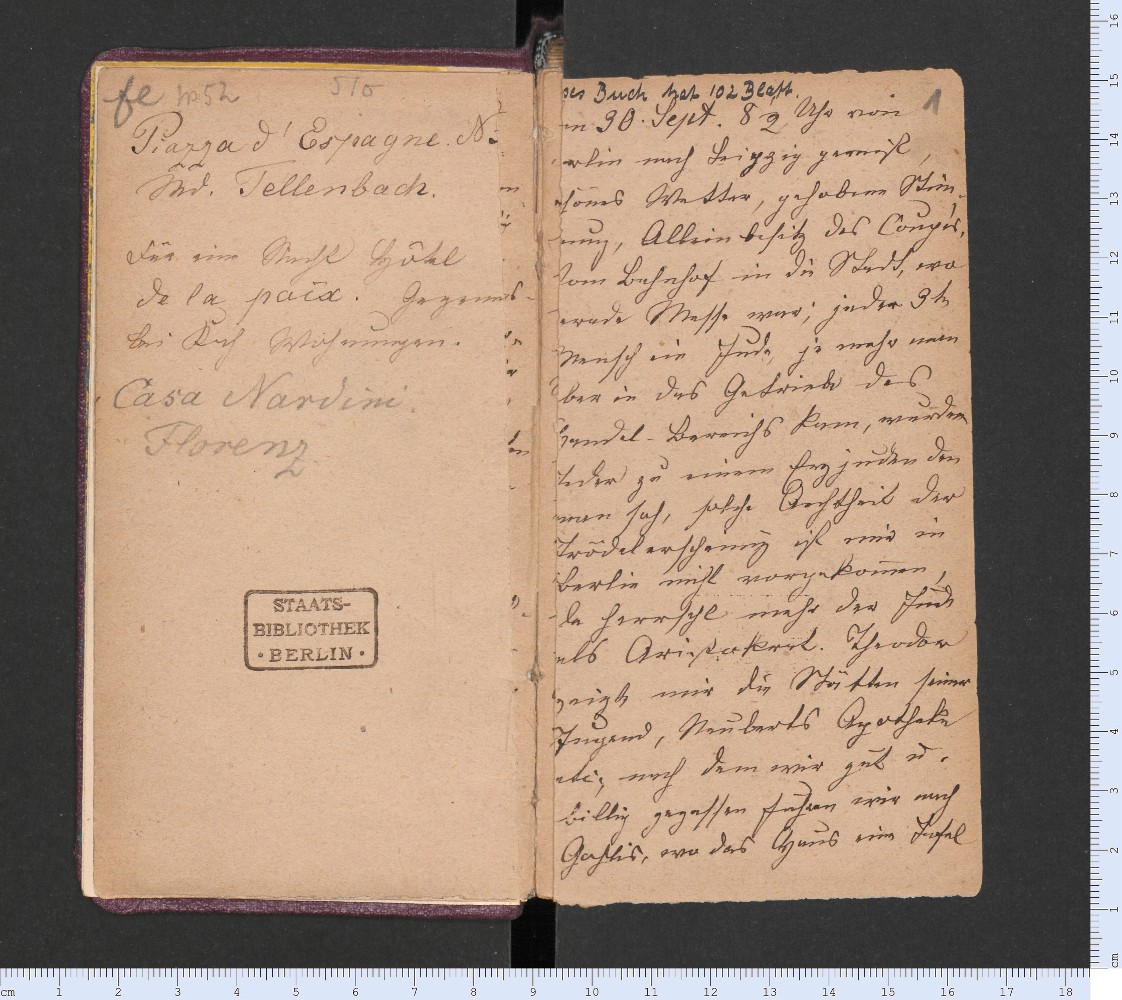 fe
510
Piazza d'Espagne. No
Md. Tellenbach.
Für eine Nacht Hôtel
de la paix. Gegenüs-
bei Koch Wohnungen.
Casa Nardini.
Florenz
STAATS-
BIBLIOTHEK
· BERLIN ·
1
ses Buch hat 102 Blatt.
m 30. Sept. 8 Uhr von
erlin nach Leipzig gereist,
hönes Wetter, gehobene Stim-
mung, Alleinbesitz des Coupés,
Vom Bahnhof in die Stadt, wo
erade Messe war; jeder 3te
Mensch ein Jude, je mehr man
ber in das Getriebe des
Handel-Bereichs kam, wurden
jeder zu einem Erzjuden den
man sah, solche Aechtheit der
Trödelerscheinung ist mir in
Berlin nicht vorgekommen,
da herrscht mehr der Jude
als Aristokrat. Theodor
zeigte mir die Stätten seiner
Jugend, Neuberts Apotheke
etc; nach dem wir gut u.
billig gegessen fuhren wir nach
Gohlis, wo das Haus eine Tafel